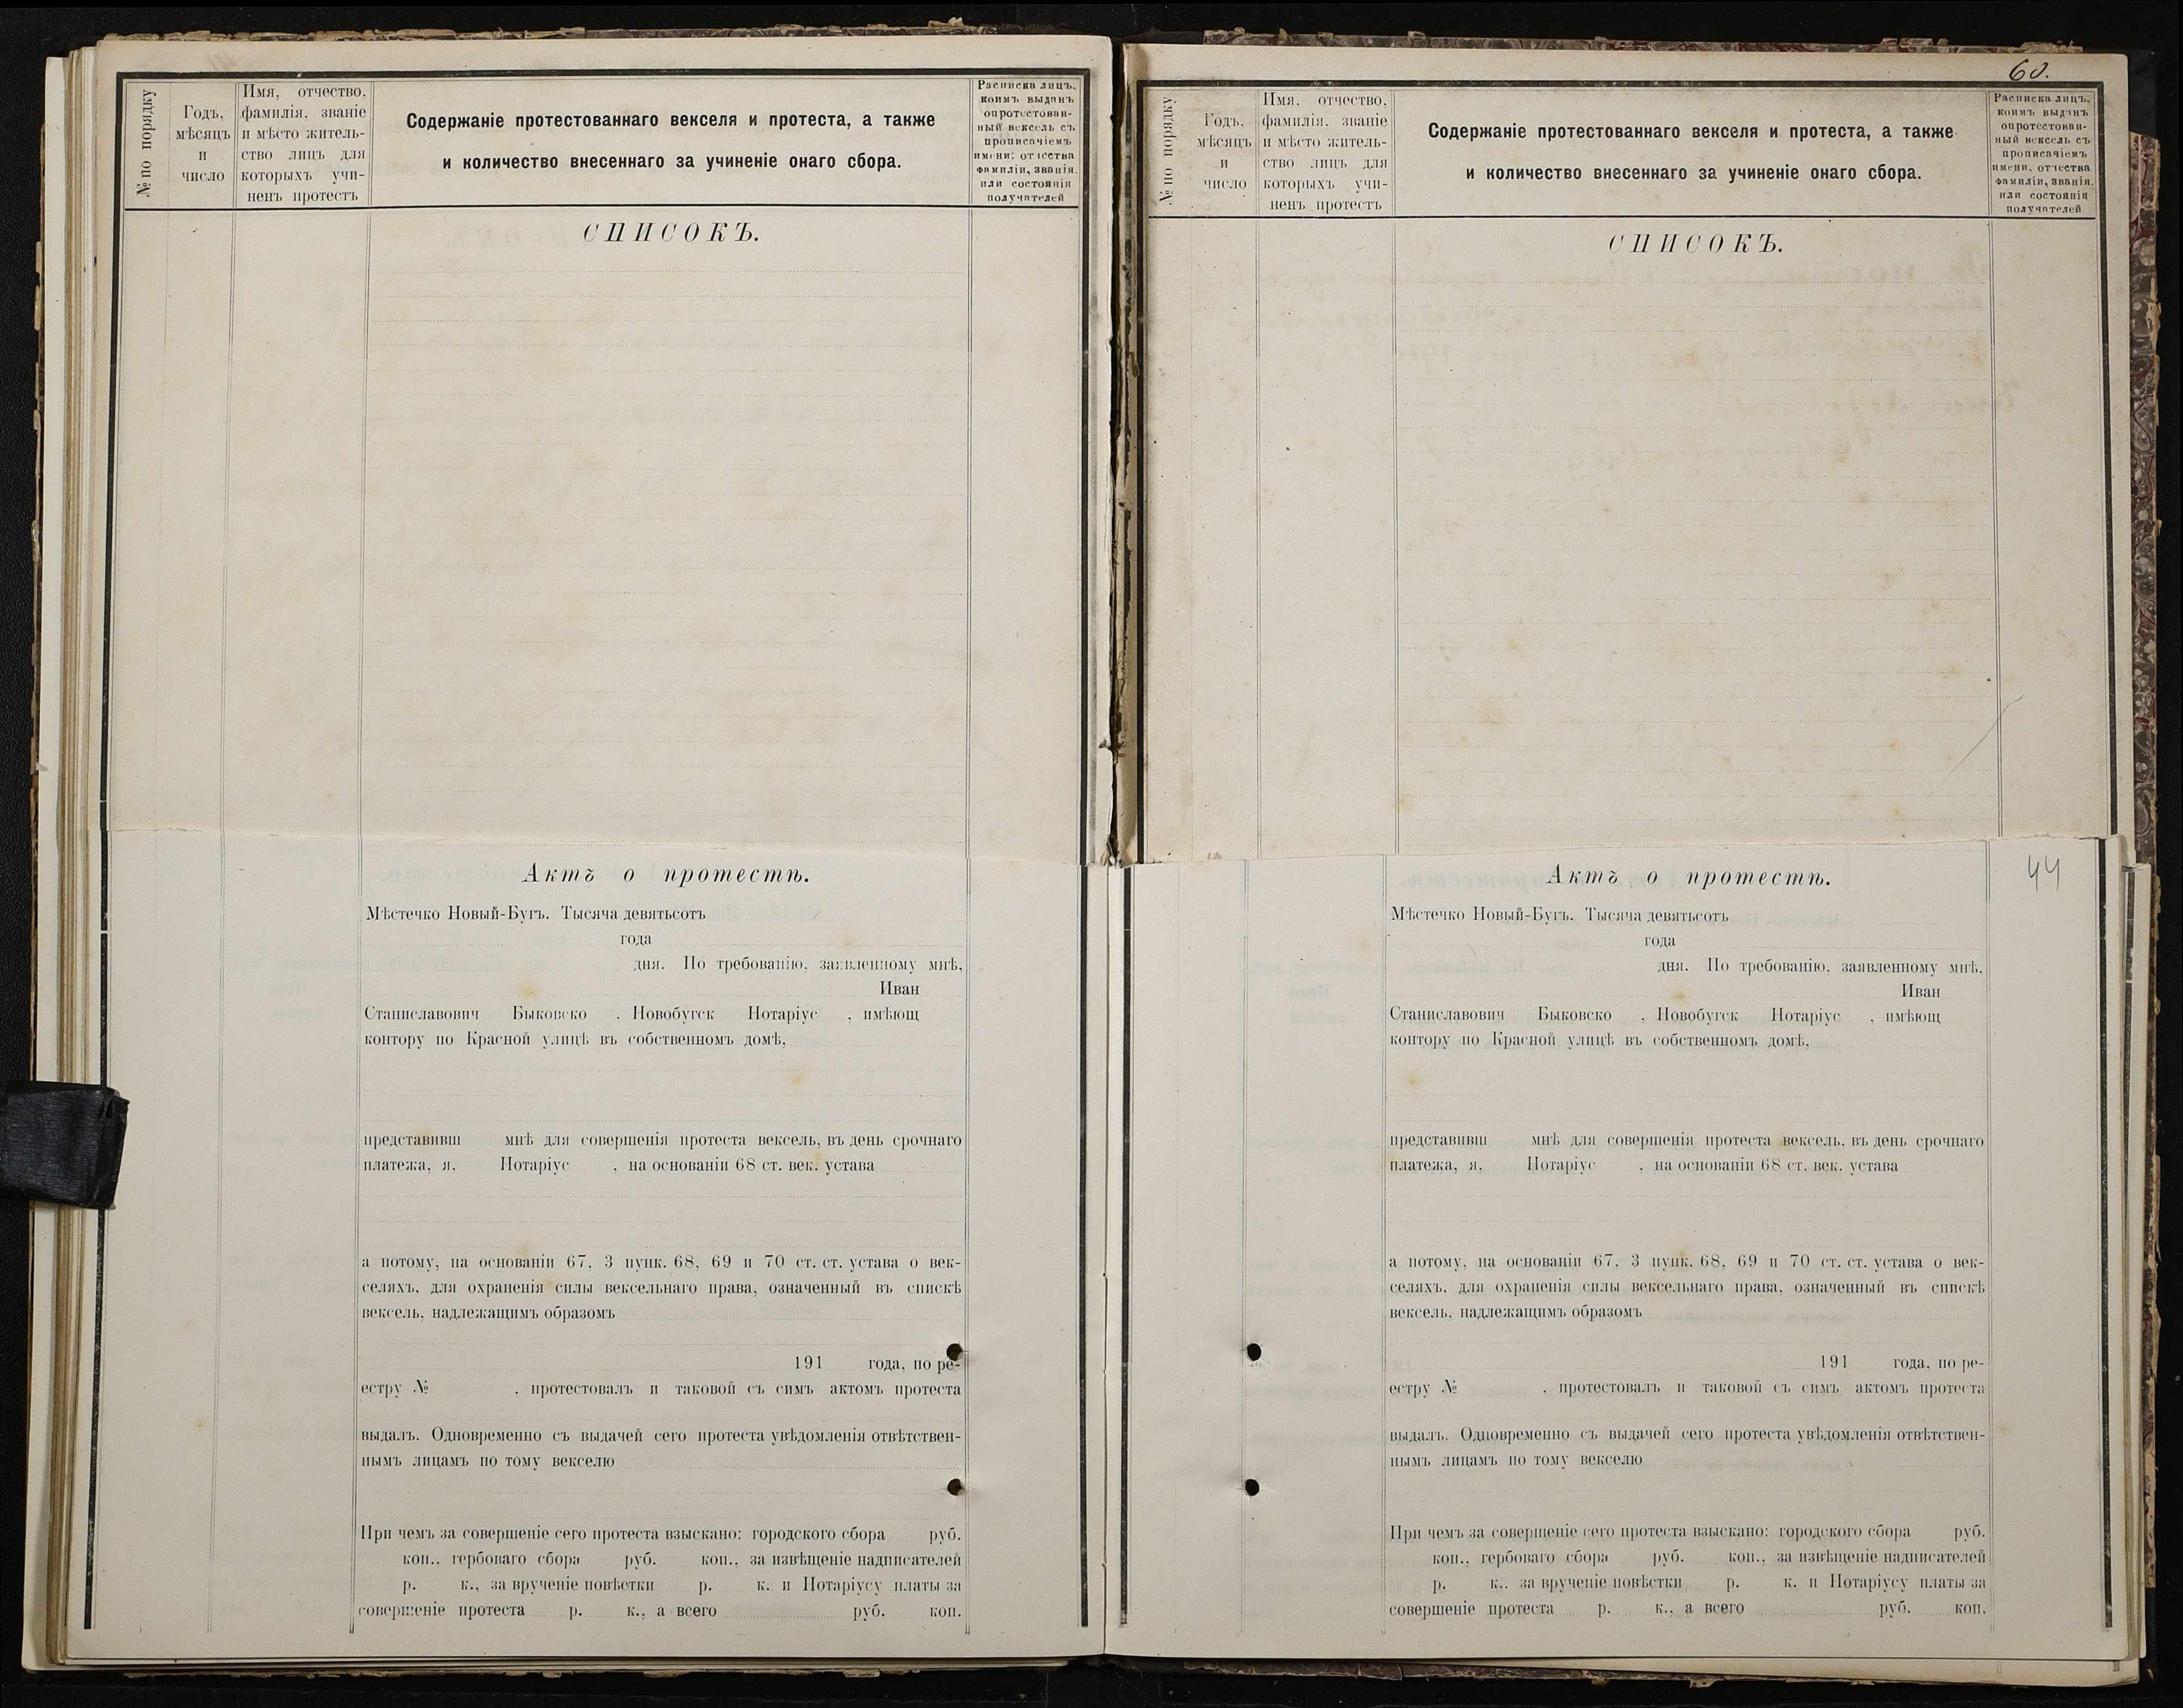 № по порядку
Годъ,
мѣсяцъ
и
число
Имя, отчество,
фамилія, званіе
и мѣсто житель-
ство лицъ для
которыхъ учи-
ненъ протестъ
Содержаніе протестованнаго векселя и протеста, а также
и количество внесеннаго за учиненіе онаго сбора.
Расписка лицъ,
коимъ выданъ
опротестован-
ный вексель съ
прописаніемъ
имени, отчества
фамиліи, званія,
или состоянія
получателей
СПИСОКЪ.
Актъ о протестѣ.
Мѣстечко Новый-Бугъ. Тысяча девятьсотъ
года
дня. По требованію, заявленному мнѣ,
Иван
Станиславович Быковско , Новобугск Нотаріус , имѣющ
контору по Красной улицѣ въ собственномъ домѣ,
представивш мнѣ для совершенія протеста вексель, въ день срочнаго
платежа, я, Нотаріус , на основаніи 68 ст. век. устава
а потому, на основаніи 67, 3 пунк. 68, 69 и 70 ст. ст. устава о век-
селяхъ, для охраненія силы вексельнаго права, означенный въ спискѣ
вексель, надлежащимъ образомъ
191 года, по ре-
естру № , протестовалъ и таковой съ симъ актомъ протеста
выдалъ. Одновременно съ выдачей сего протеста увѣдомленія отвѣтствен-
нымъ лицамъ по тому векселю
При чемъ за совершеніе сего протеста взыскано: городского сбора руб.
коп., гербоваго сбора руб. коп., за извѣщеніе надписателей
р. к., за врученіе повѣстки р. к. и Нотаріусу платы за
совершеніе протеста р. к., а всего руб. коп.
60.
№ по порядку
Годъ,
мѣсяцъ
и
число
Имя, отчество,
фамилія, званіе
и мѣсто житель-
ство лицъ для
которыхъ учи-
ненъ протестъ
Содержаніе протестованнаго векселя и протеста, а также
и количество внесеннаго за учиненіе онаго сбора.
Расписка лицъ,
коимъ выданъ
опротестован-
ный вексель съ
прописаніемъ
имени, отчества
фамиліи, званія,
или состоянія
получателей
СПИСОКЪ.
44
Актъ о протестѣ.
Мѣстечко Новый-Бугъ. Тысяча девятьсотъ
года
дня. По требованію, заявленному мнѣ,
Иван
Станиславович Быковско , Новобугск Нотаріус , имѣющ
контору по Красной улицѣ въ собственномъ домѣ,
представивш мнѣ для совершенія протеста вексель, въ день срочнаго
платежа, я, Нотаріус , на основаніи 68 ст. век. устава
а потому, на основаніи 67, 3 пунк. 68, 69 и 70 ст. ст. устава о век-
селяхъ, для охраненія силы вексельнаго права, означенный въ спискѣ
вексель, надлежащимъ образомъ
191 года, по ре-
естру № , протестовалъ и таковой съ симъ актомъ протеста
выдалъ. Одновременно съ выдачей сего протеста увѣдомленія отвѣтствен-
нымъ лицамъ по тому векселю
При чемъ за совершеніе сего протеста взыскано: городского сбора руб.
коп., гербоваго сбора руб. коп., за извѣщеніе надписателей
р. к., за врученіе повѣстки р. к. и Нотаріусу платы за
совершеніе протеста р. к., а всего руб. коп.